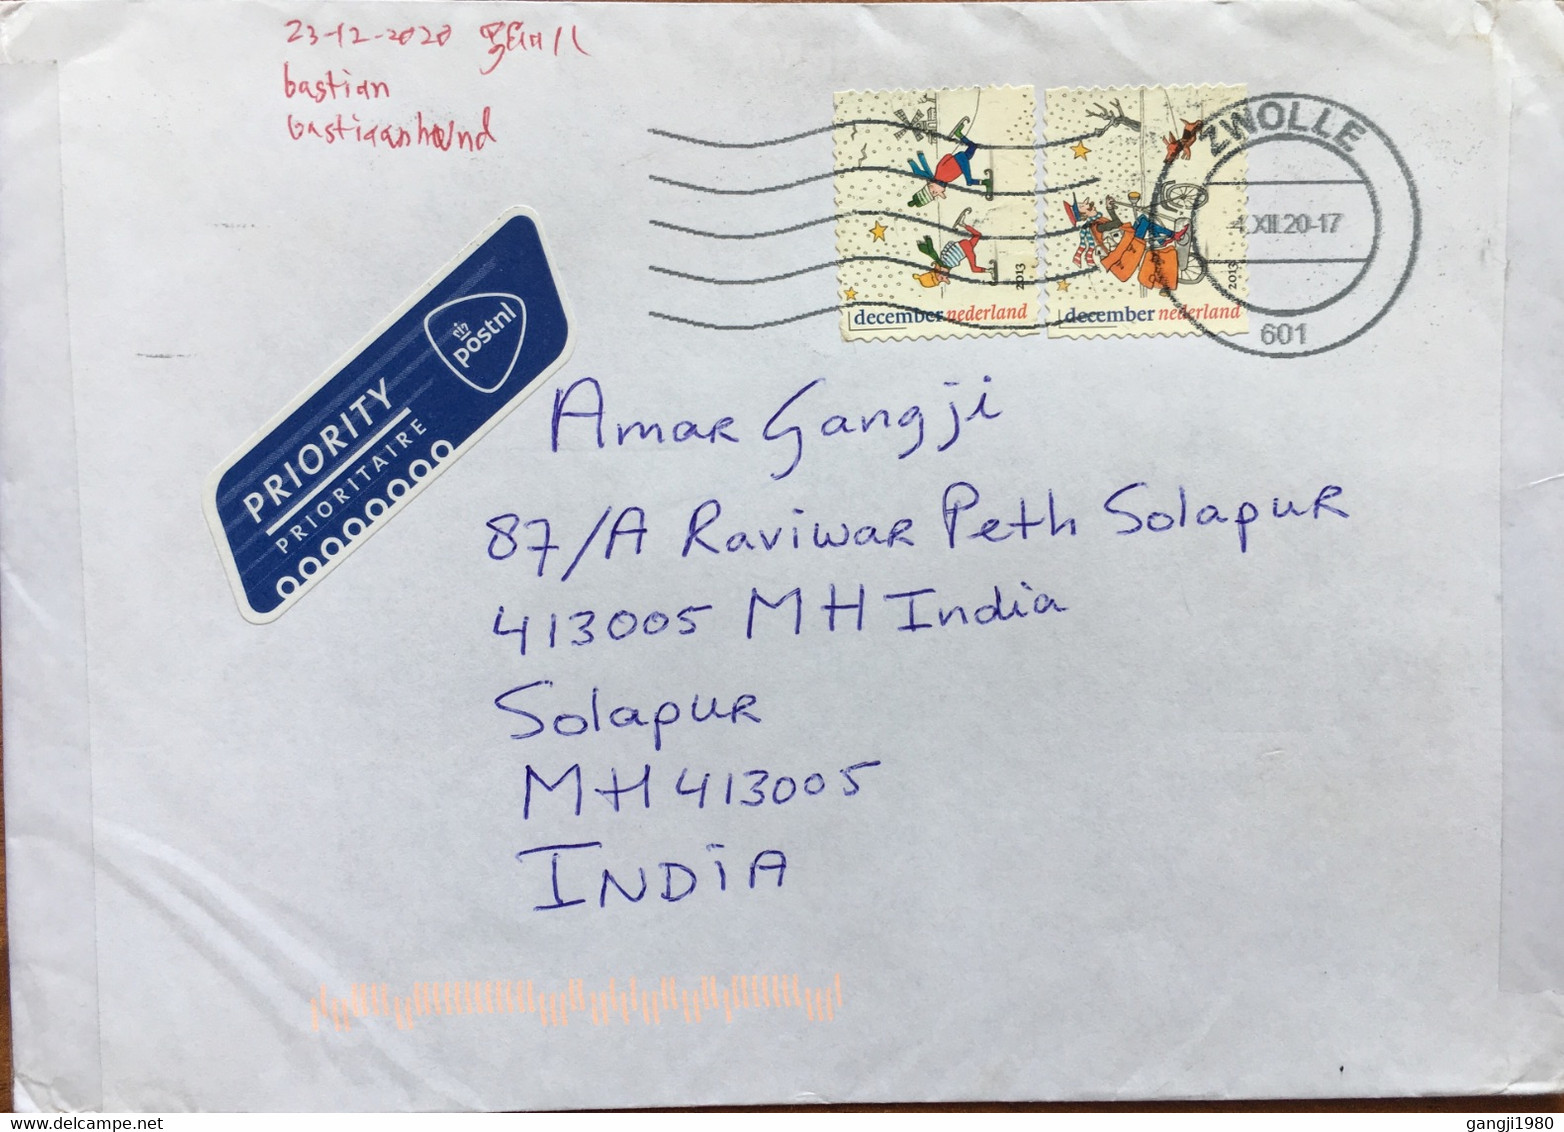 23-12-2020
bastian
PRIORITY
PRIORITAIRE
postnl
december nederland
2013
december nederland
2013
ZWOLLE
4.XII.20-17
601
Amar Gangji
87/A Raviwar Peth Solapur
413005 MH India
Solapur
MH 413005
INDiA
gangji1980